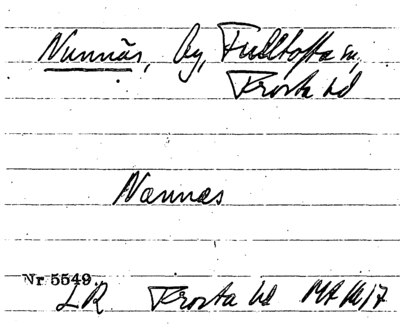 Nunnäs, by, Fulltofta sn,
Frosta hd
Nannas
Nr 5549.
LR Frosta hd